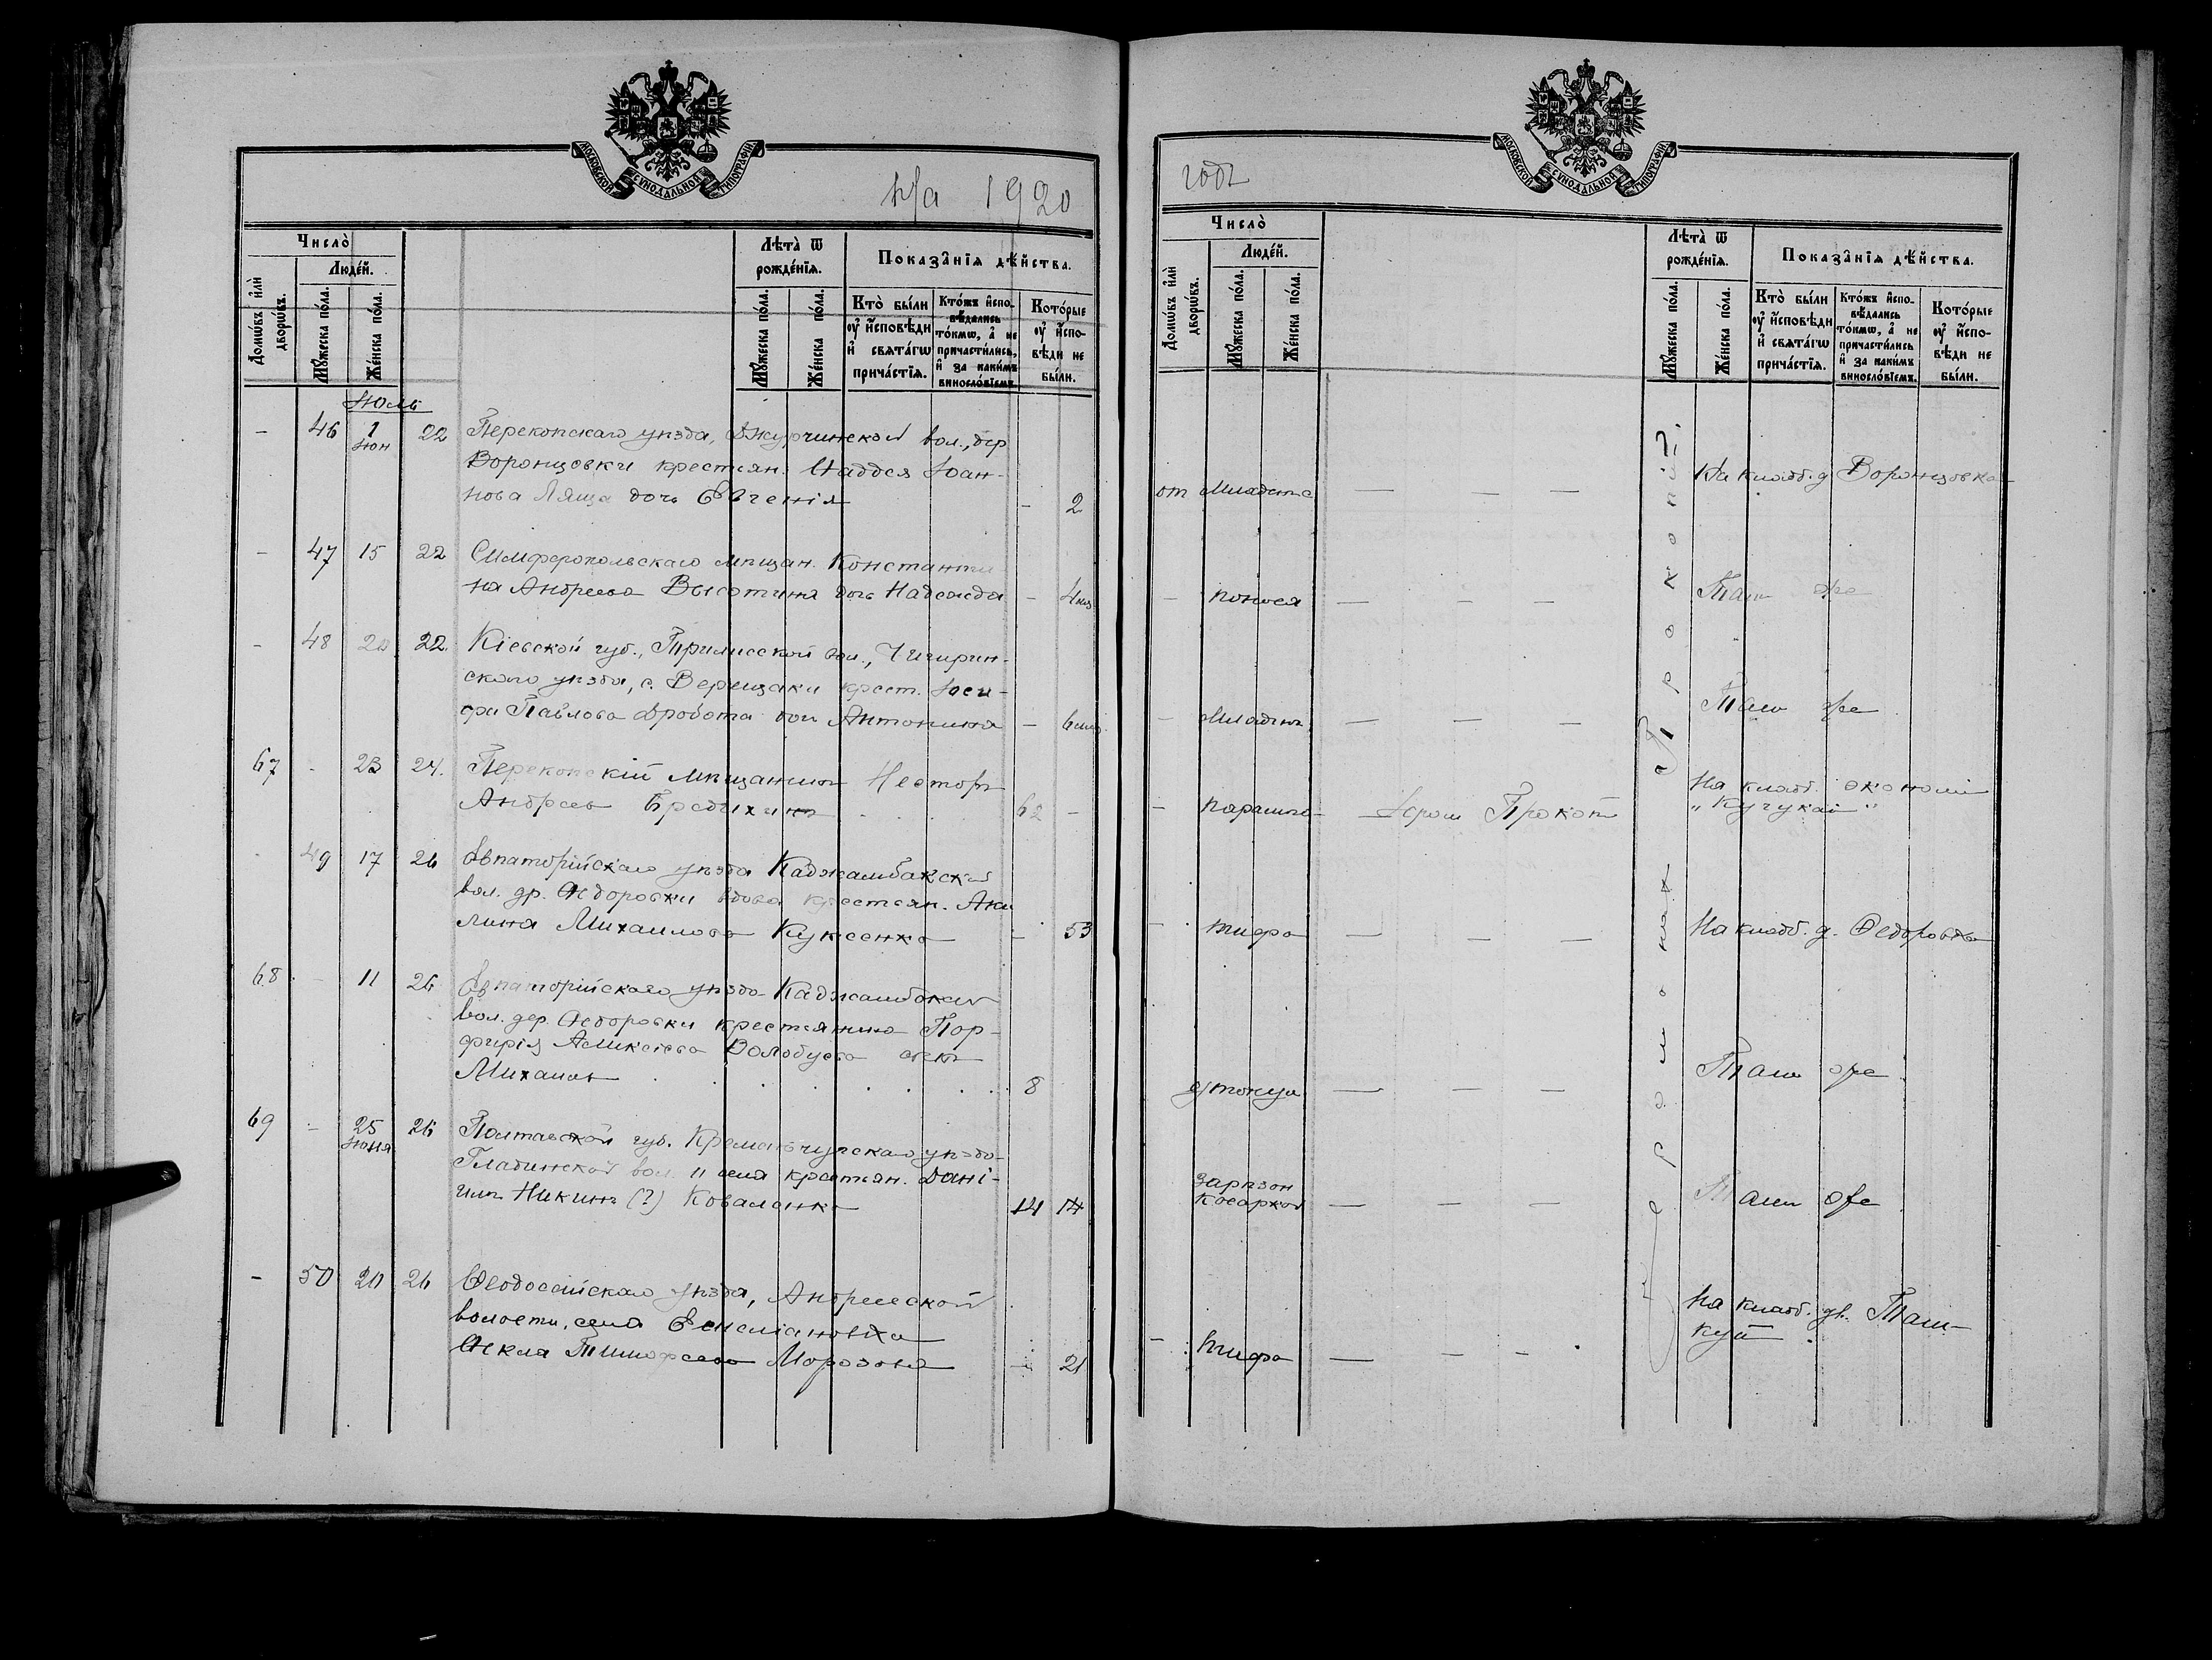 МОСКОВСКОЙ СѴНОДАЛЬНОЙ ТИПОГРАФІИ
На 1920
Число̀
Домѡ́въ и҆лѝ дворѡ́въ.
Люде́й.
Мꙋ́жеска по́ла.
Же́нска по́ла.
Лѣта̀ ѿ рожде́нїѧ.
Мꙋ́жеска по́ла.
Же́нска по́ла.
Показа̑нїѧ дѣ́йства.
Кто̀ бы́ли ᲂу҆ и҆сповѣди и҆ свѧта́гѡ прича́стїѧ.
Кто́жъ и҆спо-вѣдались то́кмѡ, а҆ не причасти́лись, и҆ за каки́мъ виносло́вїемъ.
Кото́рые ᲂу҆ и҆спо-вѣди не бы́ли.
Июль
- 46 1 Июн 22 Перекопскаго уѣзда, Джурчинской вол., дер
Воронцовки крестьян. Фаддея Іоан-
нова Ляща дочь Евгенія - 2
- 47 15 22 Симферопольскаго мѣщан. Константи
на Андреева Высотина дочь Надежда - 4
- 48 20 22. Кіевской губ., вол., Чигирин-
скаго уѣзда, с. Верещаки крест. Іоси-
фа Павлова Дробота доч Антонина - 6
67 - 23 24. Перекопскій мѣщанинъ Несторъ
Андреев Бредихинъ 62 -
49 17 26 Евпаторійскаго уѣзда Каджамбакской
вол. др. Федоровки вдова крестьян. Аки
лина Михаилова Куксенко - 53
68 - 11 26 Евпаторійскаго уѣзда Каджамбакск
вол. дер. Федоровки крестьянина Пор-
фирія Алексіева Волобуева сынъ
Михаилъ 8
69 - 25 Июня 26 Полтавской губ. Кременчугскаго уѣзда
вол. села крестьян. Дані-
илъ Никинъ (?) Коваленко 14 14
- 50 20 26 Феодосійскаго уѣзда, Андреевской
волости, села Емеліановка
Фекла Тимофеева Морозова - 21
МОСКОВСКОЙ СѴНОДАЛЬНОЙ ТИПОГРАФІИ
годъ
Число̀
Домѡ́въ и҆лѝ дворѡ́въ.
Люде́й.
Мꙋ́жеска по́ла.
Же́нска по́ла.
Лѣта̀ ѿ рожде́нїѧ.
Мꙋ́жеска по́ла.
Же́нска по́ла.
Показа̑нїѧ дѣ́йства.
Кто̀ бы́ли ᲂу҆ и҆сповѣди и҆ свѧта́гѡ прича́стїѧ.
Кто́жъ и҆спо-вѣдались то́кмѡ, а҆ не причасти́лись и҆ за каки́мъ виносло́вїемъ.
Кото́рые ᲂу҆ и҆спо-вѣди не бы́ли.
от младенч — — — На кладб. д Воронцовка
- поноса — — — Там же
- младенч — — — Там же
- — Іером Прокоп На кладб. экономіи
"Кучукай"
- тифа — — — На кладб. д. Федоровка
Там же
Косаркой — — — Там же
- тифа — — - На кладб. дв. Таш-
куи
Іеромонах Прокопій.